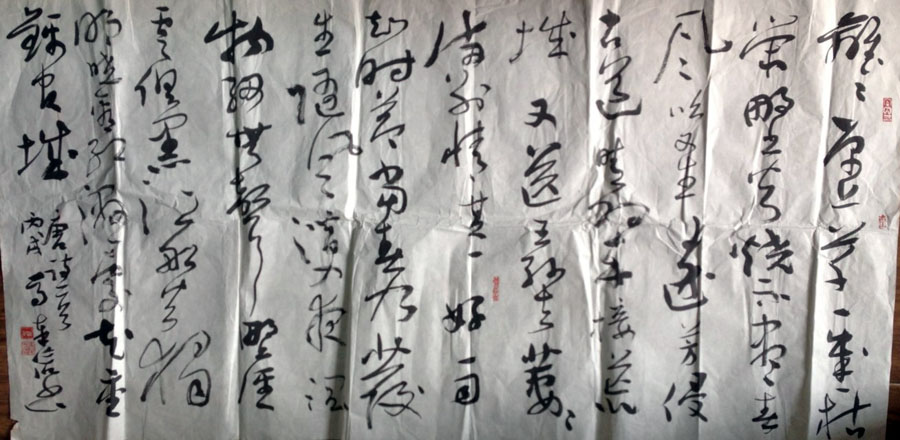 離〻原上草一歲一枯
榮野火燒不盡春
风吹又生遠芳侵
古道晴翠接荒
城又送王孫去萋〻
滿別情其二好雨
知时節当春乃發
生隨风潛入夜潤
物細無聲野徑
雲俱黑江船火獨
明曉看紅濕處花重
錦官城
唐詩二首
丙戌